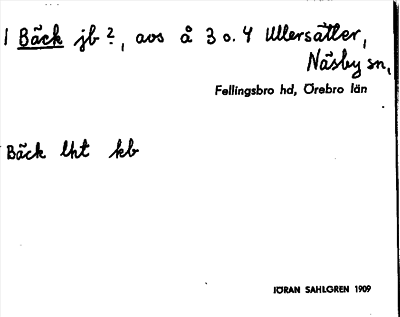 1 Bäck jb ?, avs å 3 o. 4 Ullersätter,
Näsby sn,
Fellingsbro hd, Örebro län
Bäck lht kb
JÖRAN SAHLGREN 1909